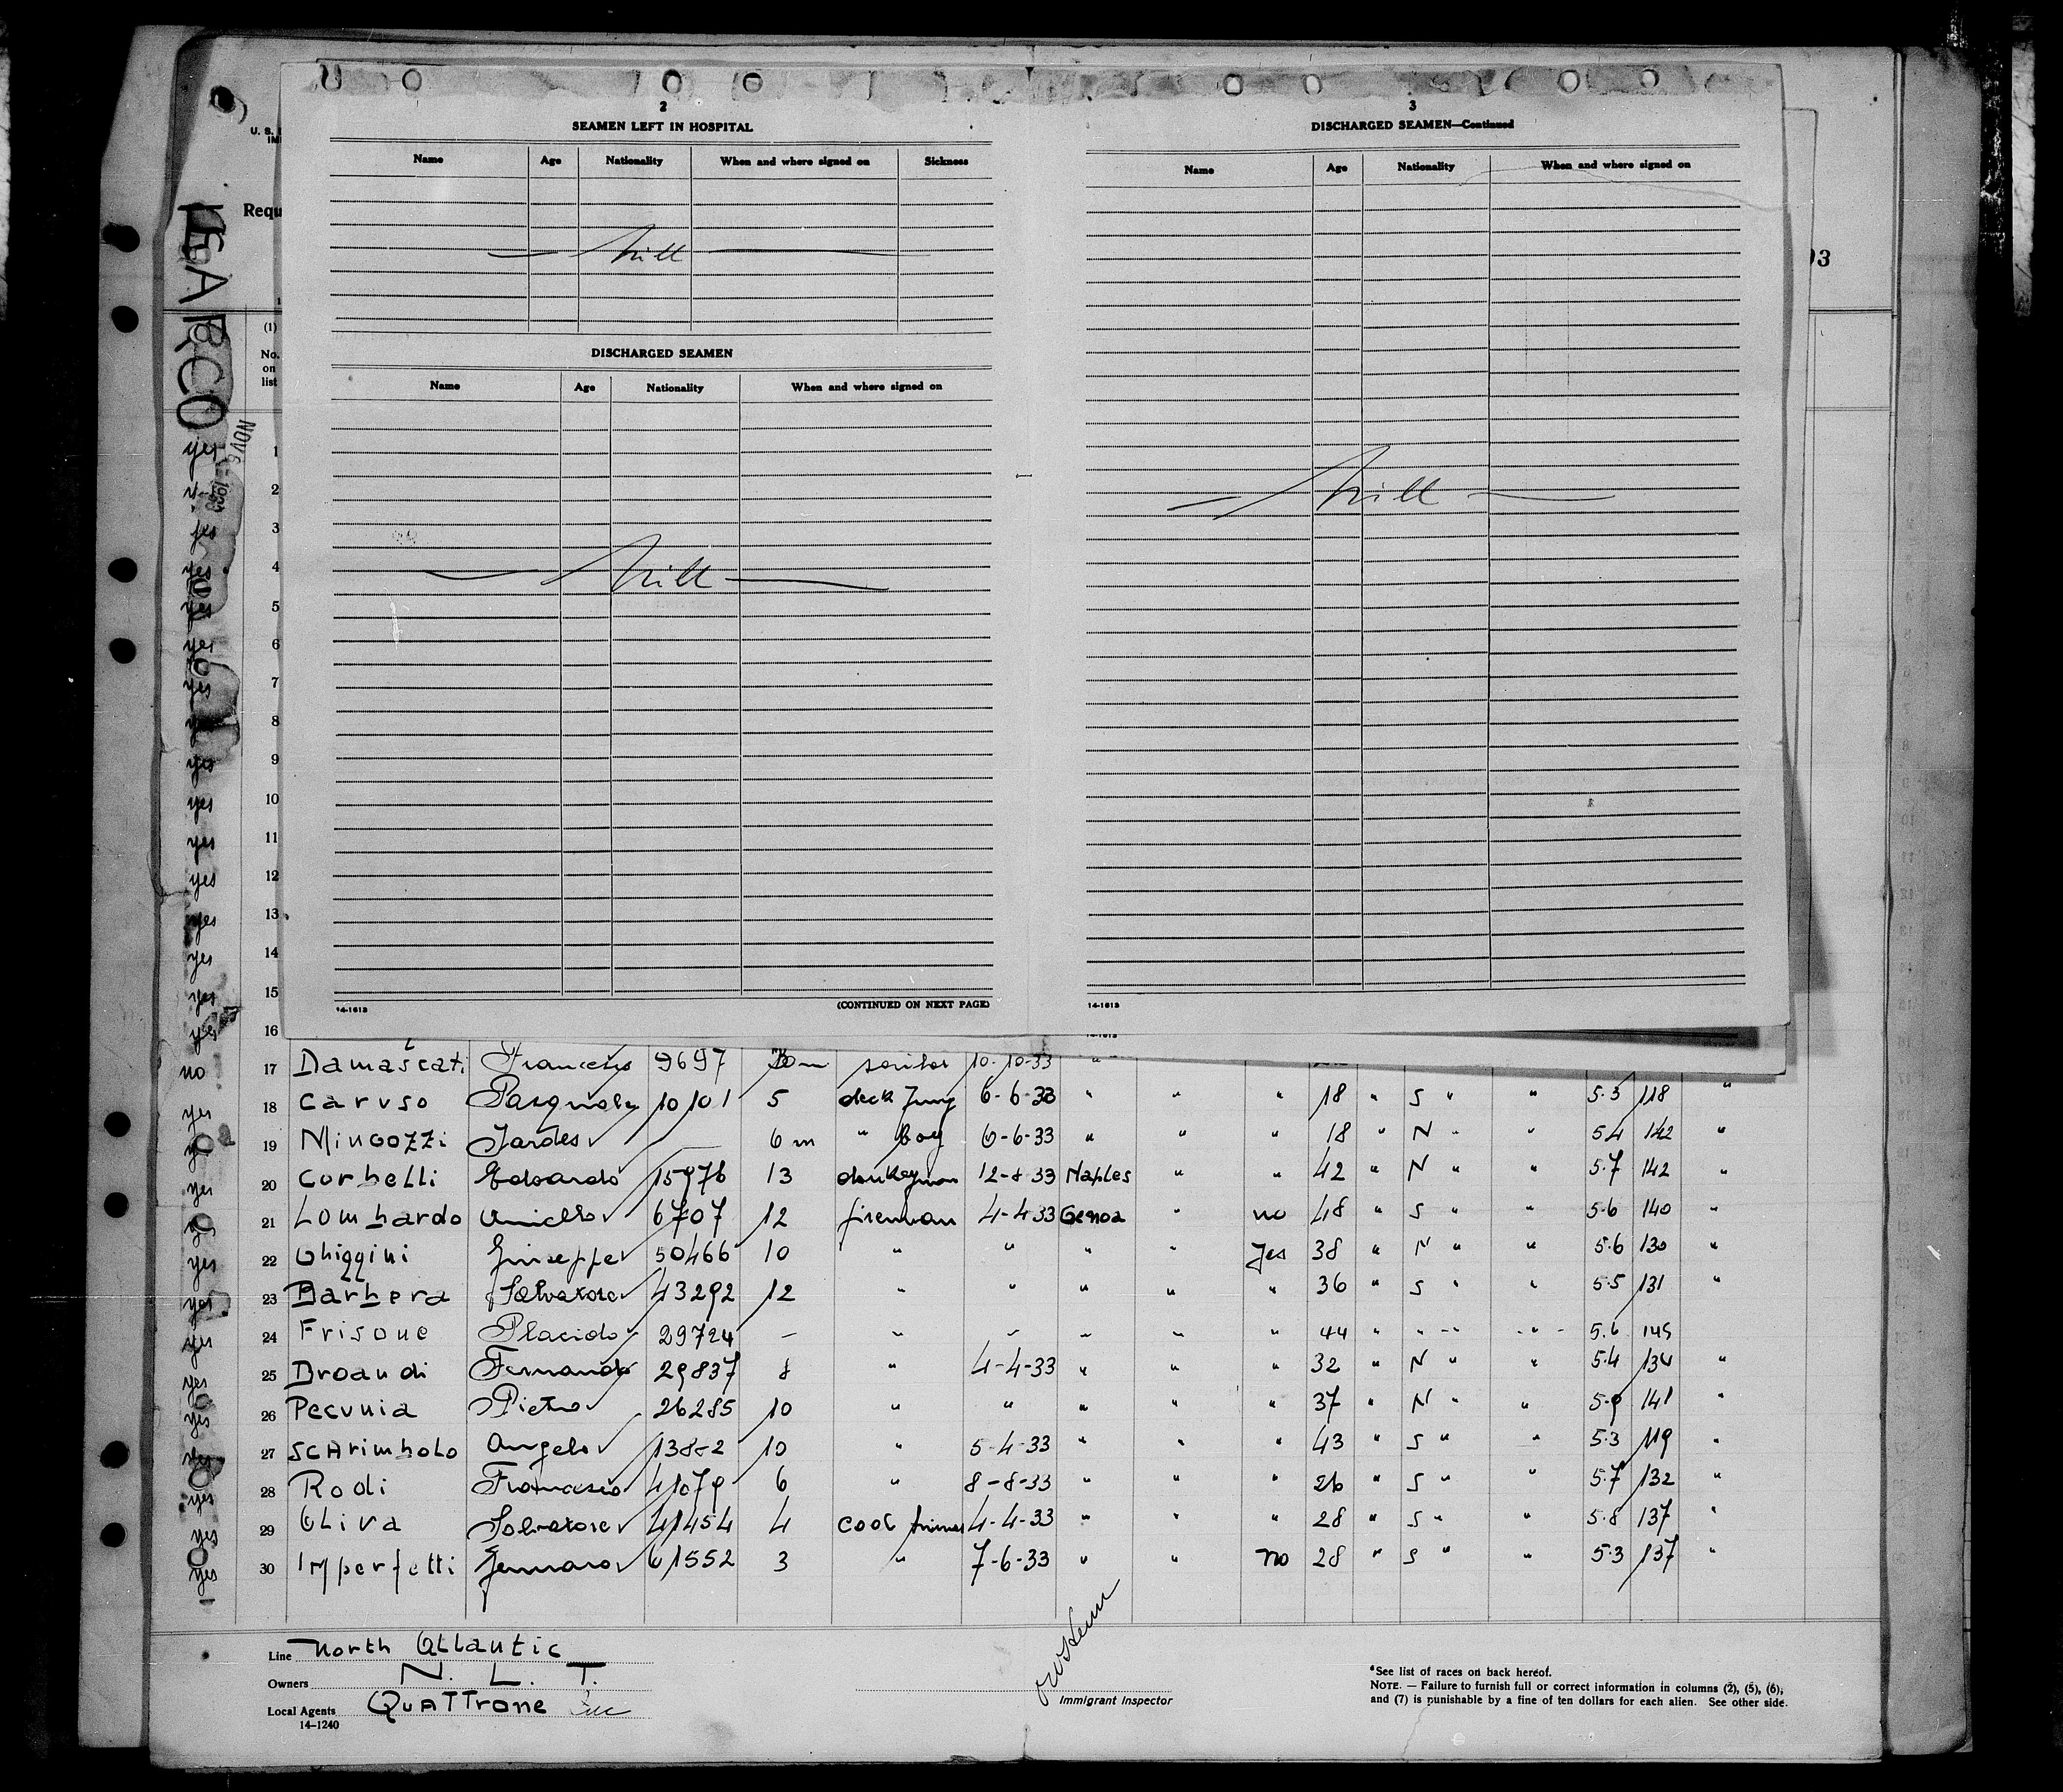 2
SEAMEN LEFT IN HOSPITAL
Name Age Nationality When and where signed on Sickness
Nill
DISCHARGED SEAMEN
Name Age Nationality When and where signed on
Nill
14-1613 (CONTINUED ON NEXT PAGE)
3
DISCHARGED SEAMEN—Continued
Name Age Nationality When and where signed on
Nill
14-1613
14-1613
U. S.
Requ
(1)
No.
on
list
93
yes 1
2
yes 3
yes 4
yes 5
yes 6
yes 7
8
yes 9
yes 10
yes 11
yes 12
yes 13
yes 14
yes 15
yes 16
no 17 Damascati Francesco 9697 10-10-33 "
yes 18 Caruso Pasquale 10101 5 deck 6-6-33 " " " 18 " S " " 5.3 118 "
19 Mingozzi Jardes — 6 m " boy 6-6-33 " " " 18 " N " " 5.4 142 "
yes 20 Corbelli Edoardo 15976 13 donkeyman 12-8-33 Naples " " 42 " N " " 5.7 142 "
yes 21 Lombardo Aniello 6707 12 fireman 4-4-33 Genoa " no 48 " S " " 5.6 140 "
yes 22 Ghiggini Giuseppe 50466 10 " " " " Yes 38 " N " " 5.6 130 "
yes 23 Barbera Salvatore 43292 12 " " " " " 36 " S " " 5.5 131 "
yes 24 Frisone Placido 29724 – " " " " " 44 " " " " 5.6 145
yes 25 Droandi Fernando 29837 8 " 4-4-33 " " " 32 " N " " 5.4 134 "
yes 26 Pecunia Pietro 26285 10 " " " " " 37 " N " " 5.9 141 "
yes 27 Scarimbolo Angelo 10 " 5-4-33 " " " 43 " S " " 5.3 119 "
yes 28 Rodi Francesco 41079 6 " 8-8-33 " " " 26 S " " 5.7 132 "
yes 29 Oliva Salvatore 41454 4 4-4-33 " " " 28 " S " " 5.8 137 "
yes 30 Imperfetti Gennaro 61552 3 " 7-6-33 " " no 28 " S " " 5.3 137 "
Line North Atlantic
Owners N. L. T.
Local Agents Quattrone Inc
14-1240
Immigrant Inspector
*See list of races on back hereof.
NOTE. — Failure to furnish full or correct information in columns (2), (5), (6),
and (7) is punishable by a fine of ten dollars for each alien. See other side.